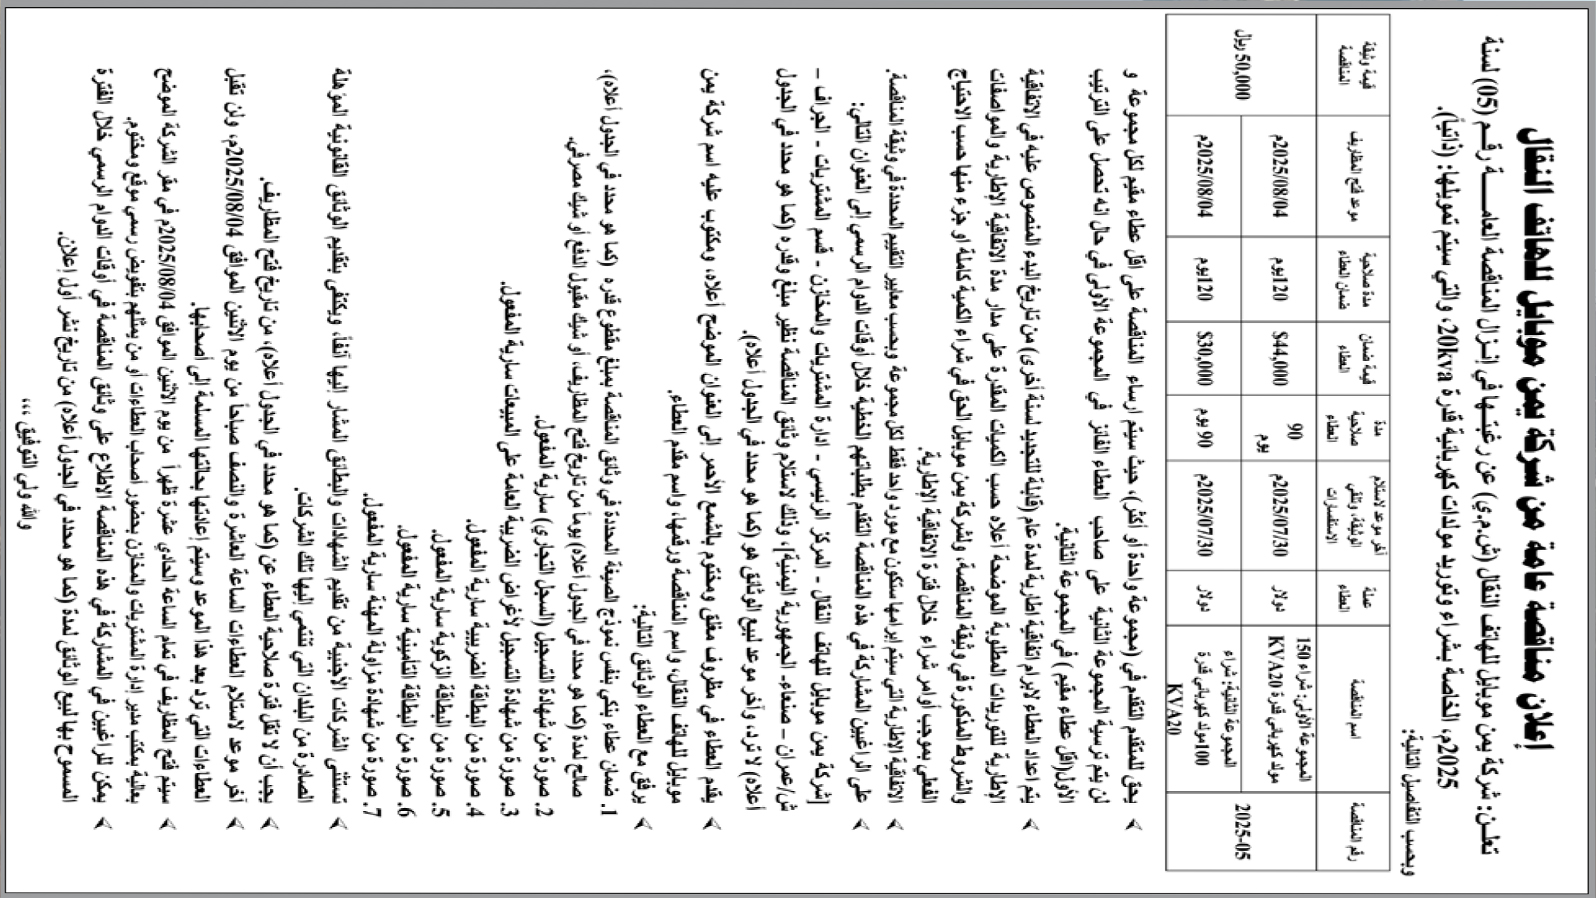 إعلان مناقصة عامة من شركة يمن موبايل للهاتف النقال
تعلـن: شركة يمن موبايل للهاتف النقال (ش.م.ي) عن رغبتـها في إنـزال المناقصة العامـــــة رقـم (05) لسنة
2025م، الخاصة بشراء وتوريد مولدات كهربائية قدرة 20kva، والتي سيتم تمويلها: (ذاتياً).
وبحسب التفاصيل التالية:
رقم المناقصة	اسم المناقصة	عملة العطاء	آخر موعد لاستلام الوثيقة، وتلقي الاستفسارات	مدة صلاحية العطاء	قيمة ضمان العطاء	مدة صلاحية ضمان العطاء	موعد فتح المظاريف	قيمة وثيقة المناقصة
2025-05	المجموعة الأولى: شراء 150 مولد كهربائي قدرة KVA20	دولار	2025/07/30م	90 يوم	$44,000	120يوم	2025/08/04م	50,000 ريال
المجموعة الثانية: شراء 100مولد كهربائي قدرة KVA20	دولار	2025/07/30م	90 يوم	$30,000	120يوم	2025/08/04م
يحق للمتقدم التقدم في (مجموعة واحدة أو أكثر)، حيث سيتم ارساء المناقصة على اقل عطاء مقيم لكل مجموعة و
لن يتم ترسية المجموعة الثانية على صاحب العطاء الفائز في المجموعة الأولى في حال انه تحصل على الترتيب
الأول(اقل عطاء مقيم ) في المجموعة الثانية.
يتم إعداد العطاء لابرام اتفاقية اطارية لمدة عام (قابلة للتجديد لسنة أخرى) من تاريخ البدء المنصوص عليه في الاتفاقية
الإطارية للتوريدات المطلوبة الموضحة أعلاه حسب الكميات المقدرة على مدار مدة الاتفاقية الإطارية والمواصفات
والشروط المذكورة في وثيقة المناقصة، ولشركة يمن موبايل الحق في شراء الكمية كاملة او جزء منها حسب الاحتياج
الفعلي بموجب اوامر شراء خلال فترة الاتفاقية الإطارية.
الاتفاقية الإطارية التي سيتم إبرامها ستكون مع مورد واحد فقط لكل مجموعة وبحسب معايير التقييم المحددة في وثيقة المناقصة.
على الراغبين المشاركة في هذه المناقصة التقدم بطلباتهم الخطية خلال أوقات الدوام الرسمي إلى العنوان التالي:
[شركة يمن موبايل للهاتف النقال - المركز الرئيسي - ادارة المشتريات والمخازن - قسم المشتريات - الجراف –
ش/عمران – صنعاء- الجمهورية اليمنية]، وذلك لاستلام وثائق المناقصة نظير مبلغ وقدره (كما هو محدد في الجدول
أعلاه) لا ترد، وآخر موعد لبيع الوثائق هو (كما هو محدد في الجدول أعلاه).
يقدم العطاء في مظروف مغلق ومختوم بالشمع الأحمر إلى العنوان الموضح أعلاه، ومكتوب عليه اسم شركة يمن
موبايل للهاتف النقال، واسم المناقصة ورقمها، واسم مقدم العطاء.
يرفق مع العطاء الوثائق التالية:
1. ضمان عطاء بنكي بنفس نموذج الصيغة المحددة في وثائق المناقصة بمبلغ مقطوع قدره (كما هو محدد في الجدول أعلاه)،
صالح لمدة (كما هو محدد في الجدول أعلاه) يوماً من تاريخ فتح المظاريف، أو شيك مقبول الدفع أو شيك مصرفي.
2. صورة من شهادة التسجيل (السجل التجاري) سارية المفعول.
3. صورة من شهادة التسجيل لأغراض الضريبة العامة على المبيعات سارية المفعول.
4. صورة من البطاقة الضريبية سارية المفعول.
5. صورة من البطاقة الزكوية سارية المفعول.
6. صورة من البطاقة التأمينية سارية المفعول.
7. صورة من شهادة مزاولة المهنة سارية المفعول.
تستثنى الشركات الأجنبية من تقديم الشهادات والبطائق المشار إليها آنفاً ويكتفى بتقديم الوثائق القانونية المؤهلة
الصادرة من البلدان التي تنتمي إليها تلك الشركات.
يجب أن لا تقل فترة صلاحية العطاء عن (كما هو محدد في الجدول أعلاه)، من تاريخ فتح المظاريف.
آخر موعد لاستلام العطاءات الساعة العاشرة والنصف صباحاً من يوم الاثنين الموافق 2025/08/04م، ولن تقبل
العطاءات التي ترد بعد هذا الموعد وسيتم إعادتها بحالتها المسلمة إلى أصحابها.
سيتم فتح المظاريف في تمام الساعة الحادي عشرة ظهراً من يوم الاثنين الموافق 2025/08/04م في مقر الشركة الموضح
بعالية بمكتب مدير إدارة المشتريات والمخازن بحضور أصحاب العطاءات أو من يمثلهم بتفويض رسمي موقع ومختوم.
يمكن للراغبين في المشاركة في هذه المناقصة الاطلاع على وثائق المناقصة في أوقات الدوام الرسمي خلال الفترة
المسموح بها لبيع الوثائق لمدة (كما هو محدد في الجدول أعلاه) من تاريخ نشر أول إعلان.
والله ولي التوفيق ،،،